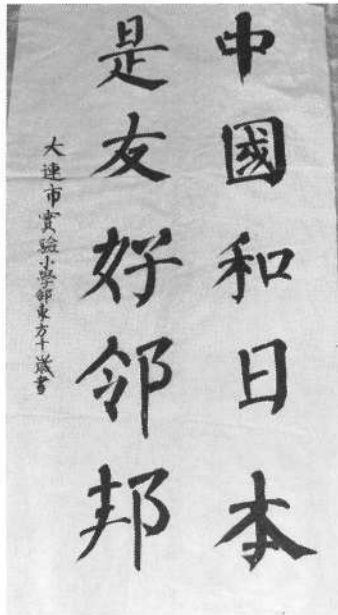 中國和日本
是友好邻邦
大連市實驗小學郭東方十歲書